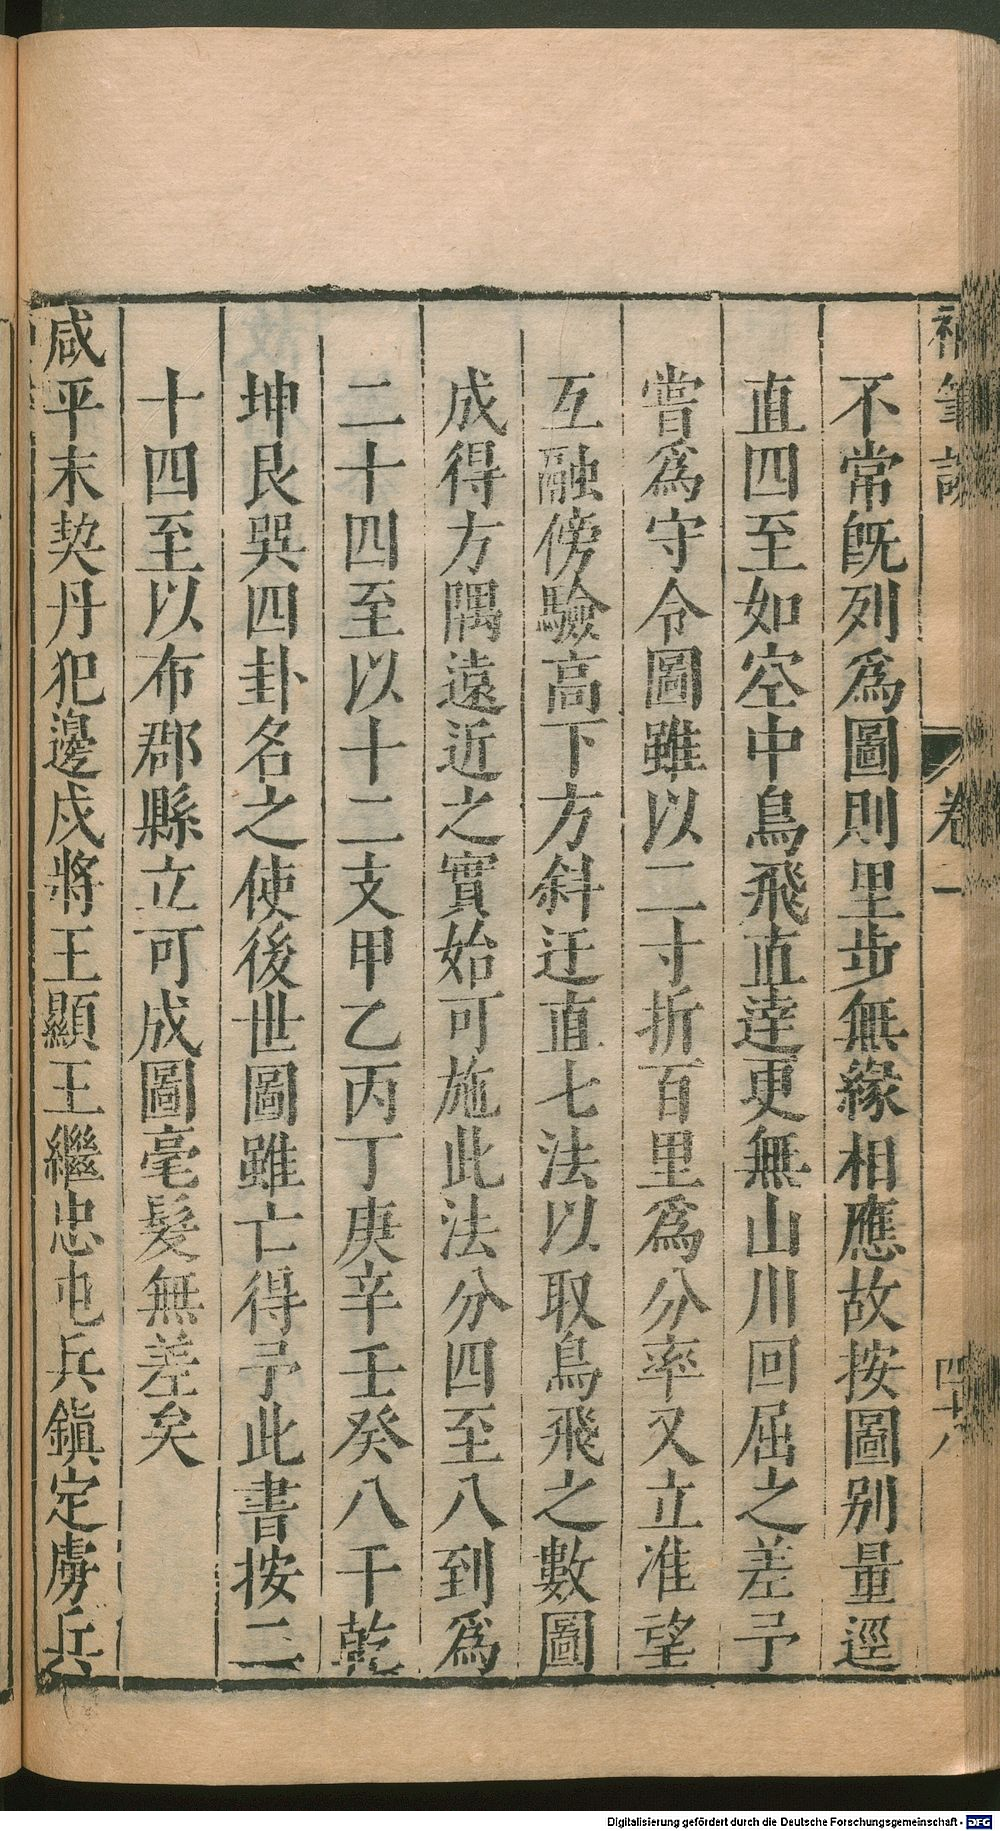 補筆談 卷一 四十八
不常既列爲圖則里步無緣相應故按圖别量逕
直四至如空中鳥飛直達更無山川回屈之差予
嘗爲守令圖雖以二寸折百里爲分率又立准望
互融傍驗高下方斜迂直七法以取鳥飛之數圖
成得方隅遠近之實始可施此法分四至八到爲
二十四至以十二支甲乙丙丁庚辛壬癸八干乾
坤艮巽四卦名之使後世圖雖亡得予此書按二
十四至以布郡縣立可成圖毫髮無差矣
咸平末契丹犯邊戍將王顯王繼忠屯兵鎭定虜兵
Digitalisierung gefördert durch die Deutsche Forschungsgemeinschaft - DFG